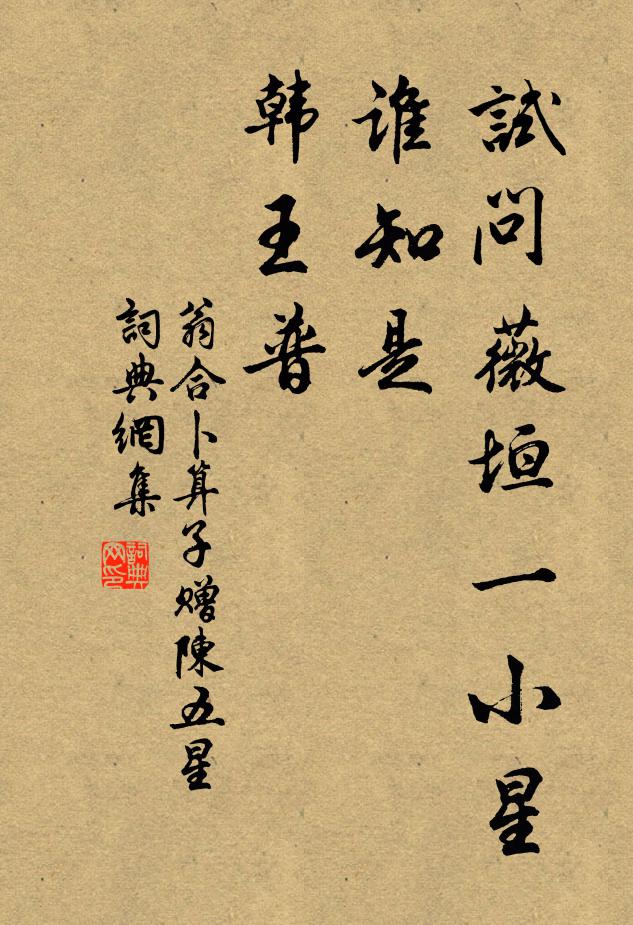 試問薇垣一小星
誰知是
韩王普
翁合卜算子赠陳五星
詞典網集
詞典
网印